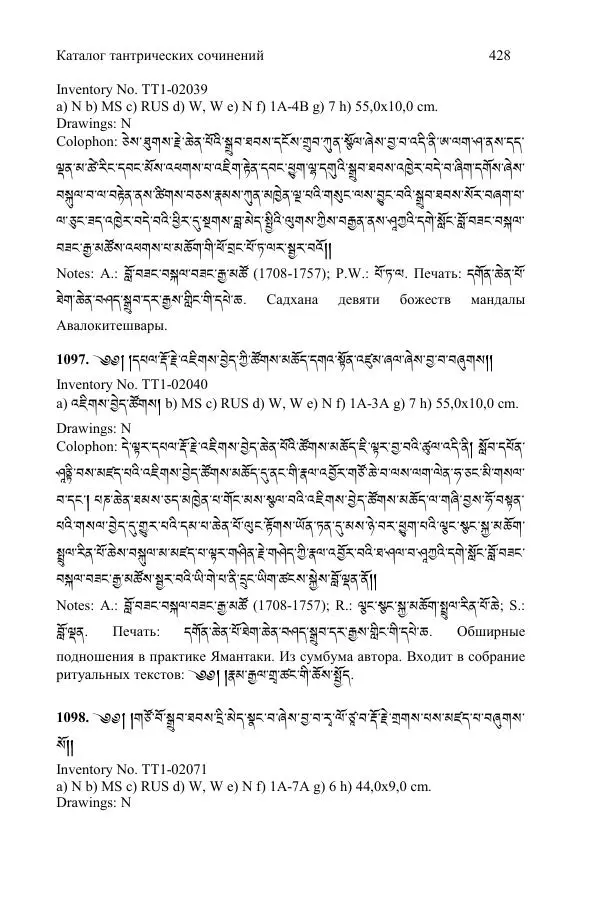 Каталог тантрических сочинений 428
Inventory No. TT1-02039
a) N b) MS c) RUS d) W, W e) N f) 1A-4B g) 7 h) 55,0x10,0 cm.
Drawings: N
Colophon: ཅེས་ཐུགས་རྗེ་ཆེན་པོའི་སྒྲུབ་ཐབས་དངོས་གྲུབ་ཀུན་སྩོལ་ཞེས་བྱ་བ་འདི་ནི་ཨ་ལག་ཤ་ནས་དད་
ལྡན་མ་ཚེ་རིང་དབང་མོས་འཕགས་པ་འཇིག་རྟེན་དབང་ཕྱུག་ལྷ་དགུའི་སྒྲུབ་ཐབས་འཁྱེར་བདེ་བ་ཞིག་དགོས་ཞེས་
བསྐུལ་བ་ལ་བརྟེན་ནས་ཚིགས་བཅས་རྣམས་ཀུན་མཁྱེན་ལྔ་པའི་གསུང་ལས་བྱུང་བའི་སྒྲུབ་ཐབས་སོར་བཞག་པ་
ལ་ཅུང་ཟད་འཁྱེར་བདེ་བའི་ཕྱིར་དུ་སྔགས་བླ་མེད་སྤྱིའི་ལུགས་ཀྱིས་བརྒྱན་ནས་ཤཱཀྱའི་དགེ་སློང་བློ་བཟང་བསྐལ་
བཟང་རྒྱ་མཚོས་འཕགས་པ་མཆོག་གི་ཕོ་བྲང་པོ་ཏ་ལར་སྦྱར་བའོ།།
Notes: A.: བློ་བཟང་བསྐལ་བཟང་རྒྱ་མཚོ (1708-1757); P.W.: པོ་ཏ་ལ. Печать: དགོན་ཆེན་པོ་
ཐེག་ཆེན་བཤད་སྒྲུབ་དར་རྒྱས་གླིང་གི་དཔེ་ཆ. Садхана девяти божеств мандалы
Авалокитешвары.
1097. ༄༅། །དཔལ་རྡོ་རྗེ་འཇིགས་བྱེད་ཀྱི་ཚོགས་མཆོད་དགའ་སྟོན་འཛུམ་ཞལ་ཞེས་བྱ་བ་བཞུགས།།
Inventory No. TT1-02040
a) འཇིགས་བྱེད་ཚོགས། b) MS c) RUS d) W, W e) N f) 1A-3A g) 7 h) 55,0x10,0 cm.
Drawings: N
Colophon: དེ་ལྟར་དཔལ་རྡོ་རྗེ་འཇིགས་བྱེད་ཆེན་པོའི་ཚོགས་མཆོད་ཇི་ལྟར་བྱ་བའི་ཚུལ་འདི་ནི། སློབ་དཔོན་
ཤཱནྟི་བས་མཛད་པའི་འཇིགས་བྱེད་ཚོགས་མཆོད་དུ་ནང་གི་རྣལ་འབྱོར་གཙོ་ཆེ་བ་ལས་ལག་ལེན་ཧ་ཅང་མི་གསལ་
བ་དང་། པཎ་ཆེན་ཐམས་ཅད་མཁྱེན་པ་གོང་མས་སྩལ་བའི་འཇིགས་བྱེད་ཚོགས་མཆོད་ལ་གཞི་བྱས་ཏོ་བསྟན་
པའི་གསལ་བྱེད་དུ་གྱུར་པའི་དམ་པ་ཆེན་པོ་ལུང་རྟོགས་ཡོན་ཏན་དུ་མས་ཉེ་བར་ཕྱུག་པའི་ལྕང་སྐྱ་མཆོག་
སྤྲུལ་རིན་པོ་ཆེས་བསྐུལ་མ་མཛད་པ་ལྟར་གཤིན་རྗེ་གཤེད་ཀྱི་རྣལ་འབྱོར་པའི་ཟ་ཤལ་བ་ཤཱཀྱའི་དགེ་སློང་བློ་བཟང་
བསྐལ་བཟང་རྒྱ་མཚོས་སྦྱར་བའི་ཡི་གེ་པ་ནི་དྲུང་ཡིག་ཚངས་སྐྱེས་བློ་ལྡན་ནོ།།
Notes: A.: བློ་བཟང་བསྐལ་བཟང་རྒྱ་མཚོ (1708-1757); R.: ལྕང་སྐྱ་མཆོག་སྤྲུལ་རིན་པོ་ཆེ; S.:
བློ་ལྡན. Печать: དགོན་ཆེན་པོ་ཐེག་ཆེན་བཤད་སྒྲུབ་དར་རྒྱས་གླིང་གི་དཔེ་ཆ. Обширные
подношения в практике Ямантаки. Из сумбума автора. Входит в собрание
ритуальных текстов: ༄༅། །རྣམ་རྒྱལ་གྲྭ་ཚང་གི་ཆོས་སྤྱོད.
1098. ༄༅། །གཙོ་བོ་སྒྲུབ་ཐབས་དྲི་མེད་སྣང་བ་ཞེས་བྱ་བ་རྡོ་རྗེ་གྲགས་པས་མཛད་པ་བཞུགས་
སོ།།
Inventory No. TT1-02071
a) N b) MS c) RUS d) W, W e) N f) 1A-7A g) 6 h) 44,0x9,0 cm.
Drawings: N